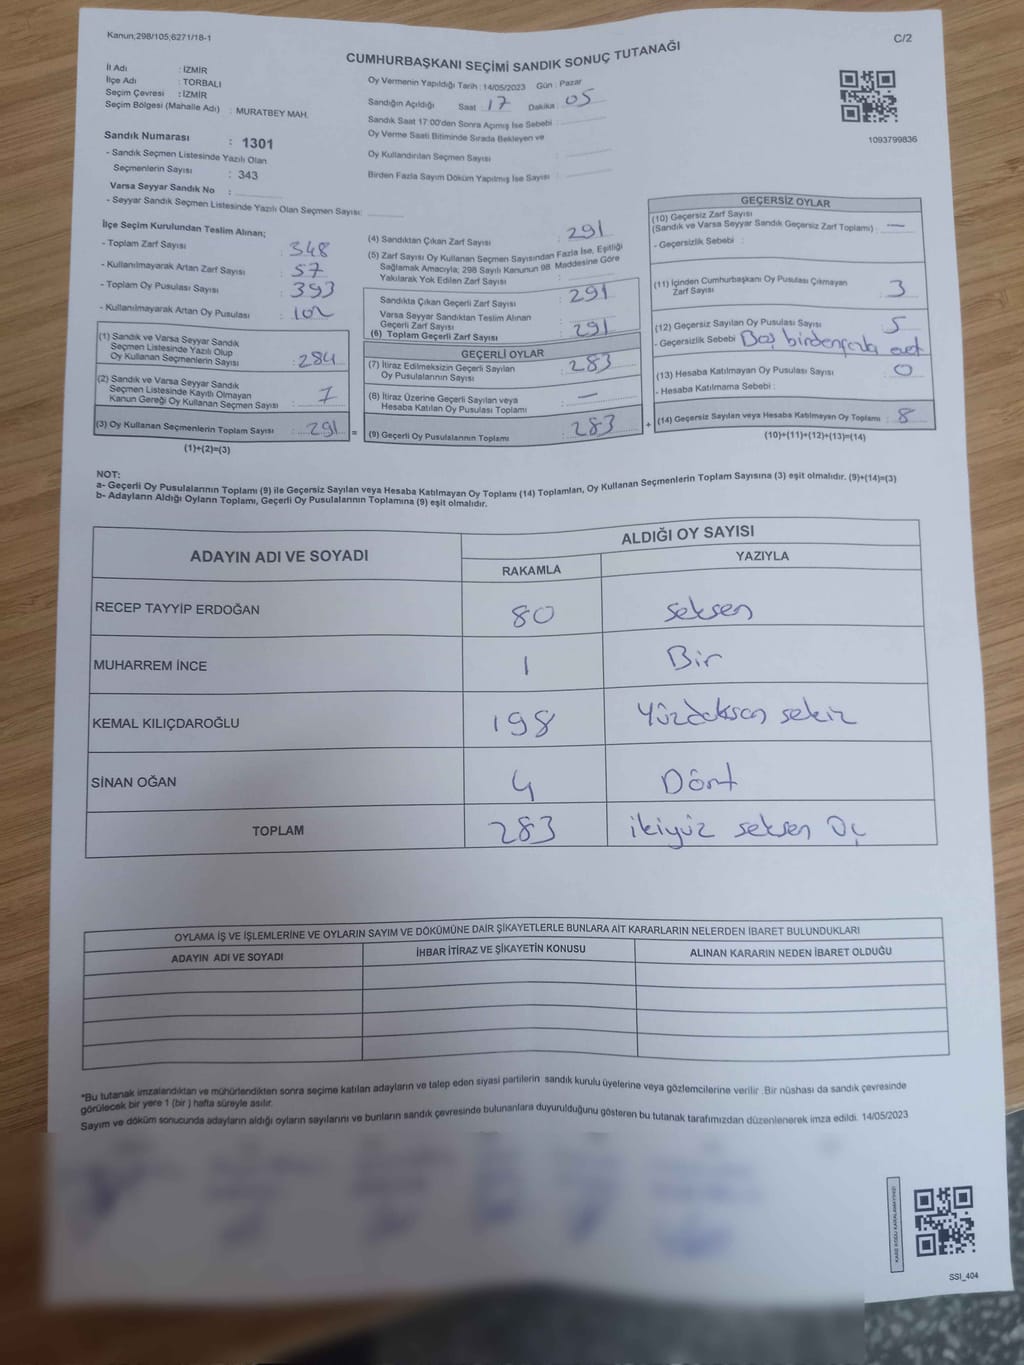 Kanun;298/105;6271/18-1
C/2
CUMHURBAŞKANI SEÇİMİ SANDIK SONUÇ TUTANAĞI
İl Adı : İZMİR
İlçe Adı : TORBALI
Seçim Çevresi : İZMİR
Seçim Bölgesi (Mahalle Adı) : MURATBEY MAH.
Sandık Numarası : 1301
- Sandık Seçmen Listesinde Yazılı Olan
Seçmenlerin Sayısı : 343
Varsa Seyyar Sandık No :
- Seyyar Sandık Seçmen Listesinde Yazılı Olan Seçmen Sayısı:
Oy Vermenin Yapıldığı Tarih : 14/05/2023 Gün : Pazar
Sandığın Açıldığı Saat : 17 Dakika : 05
Sandık Saat 17:00'den Sonra Açılmış İse Sebebi :
Oy Verme Saati Bitiminde Sırada Bekleyen ve
Oy Kullandırılan Seçmen Sayısı :
Birden Fazla Sayım Döküm Yapılmış İse Sayısı :
1093799836
İlçe Seçim Kurulundan Teslim Alınan;
- Toplam Zarf Sayısı : 348
- Kullanılmayarak Artan Zarf Sayısı : 57
- Toplam Oy Pusulası Sayısı : 393
- Kullanılmayarak Artan Oy Pusulası : 102
(1) Sandık ve Varsa Seyyar Sandık
Seçmen Listesinde Yazılı Olup
Oy Kullanan Seçmenlerin Sayısı : 284
(2) Sandık ve Varsa Seyyar Sandık
Seçmen Listesinde Kayıtlı Olmayan
Kanun Gereği Oy Kullanan Seçmen Sayısı : 7
(3) Oy Kullanan Seçmenlerin Toplam Sayısı : 291
(1)+(2)=(3)
(4) Sandıktan Çıkan Zarf Sayısı : 291
(5) Zarf Sayısı Oy Kullanan Seçmen Sayısından Fazla İse, Eşitliği
Sağlamak Amacıyla; 298 Sayılı Kanunun 98. Maddesine Göre
Yakılarak Yok Edilen Zarf Sayısı :
Sandıkta Çıkan Geçerli Zarf Sayısı : 291
Varsa Seyyar Sandıktan Teslim Alınan
Geçerli Zarf Sayısı :
(6) Toplam Geçerli Zarf Sayısı : 291
GEÇERLİ OYLAR
(7) İtiraz Edilmeksizin Geçerli Sayılan
Oy Pusulalarının Sayısı : 283
(8) İtiraz Üzerine Geçerli Sayılan veya
Hesaba Katılan Oy Pusulası Toplamı : —
= (9) Geçerli Oy Pusulalarının Toplamı : 283
GEÇERSİZ OYLAR
(10) Geçersiz Zarf Sayısı
(Sandık ve Varsa Seyyar Sandık Geçersiz Zarf Toplamı) : —
- Geçersizlik Sebebi :
(11) İçinden Cumhurbaşkanı Oy Pusulası Çıkmayan
Zarf Sayısı : 3
(12) Geçersiz Sayılan Oy Pusulası Sayısı : 5
- Geçersizlik Sebebi : Boş birdenfazla evet
(13) Hesaba Katılmayan Oy Pusulası Sayısı : 0
- Hesaba Katılmama Sebebi :
+ (14) Geçersiz Sayılan veya Hesaba Katılmayan Oy Toplamı : 8
(10)+(11)+(12)+(13)=(14)
NOT:
a- Geçerli Oy Pusulalarının Toplamı (9) ile Geçersiz Sayılan veya Hesaba Katılmayan Oy Toplamı (14) Toplamları, Oy Kullanan Seçmenlerin Toplam Sayısına (3) eşit olmalıdır. (9)+(14)=(3)
b- Adayların Aldığı Oyların Toplamı, Geçerli Oy Pusulalarının Toplamına (9) eşit olmalıdır.
ADAYIN ADI VE SOYADI ALDIĞI OY SAYISI
RAKAMLA YAZIYLA
RECEP TAYYİP ERDOĞAN 80 seksen
MUHARREM İNCE 1 Bir
KEMAL KILIÇDAROĞLU 198 Yüzdoksan sekiz
SİNAN OĞAN 4 Dört
TOPLAM 283 ikiyüz seksen üç
OYLAMA İŞ VE İŞLEMLERİNE VE OYLARIN SAYIM VE DÖKÜMÜNE DAİR ŞİKAYETLERLE BUNLARA AİT KARARLARIN NELERDEN İBARET BULUNDUKLARI
ADAYIN ADI VE SOYADI İHBAR İTİRAZ VE ŞİKAYETİN KONUSU ALINAN KARARIN NEDEN İBARET OLDUĞU
*Bu tutanak imzalandıktan ve mühürlendikten sonra seçime katılan adayların ve talep eden siyasi partilerin sandık kurulu üyelerine veya gözlemcilerine verilir. Bir nüshası da sandık çevresinde
görülecek bir yere 1 (bir) hafta süreyle asılır.
Sayım ve döküm sonucunda adayların aldığı oyların sayılarını ve bunların sandık çevresinde bulunanlara duyurulduğunu gösteren bu tutanak tarafımızdan düzenlenerek imza edildi. 14/05/2023
KARE KODU KARALAMAYINIZ!
SSI_404